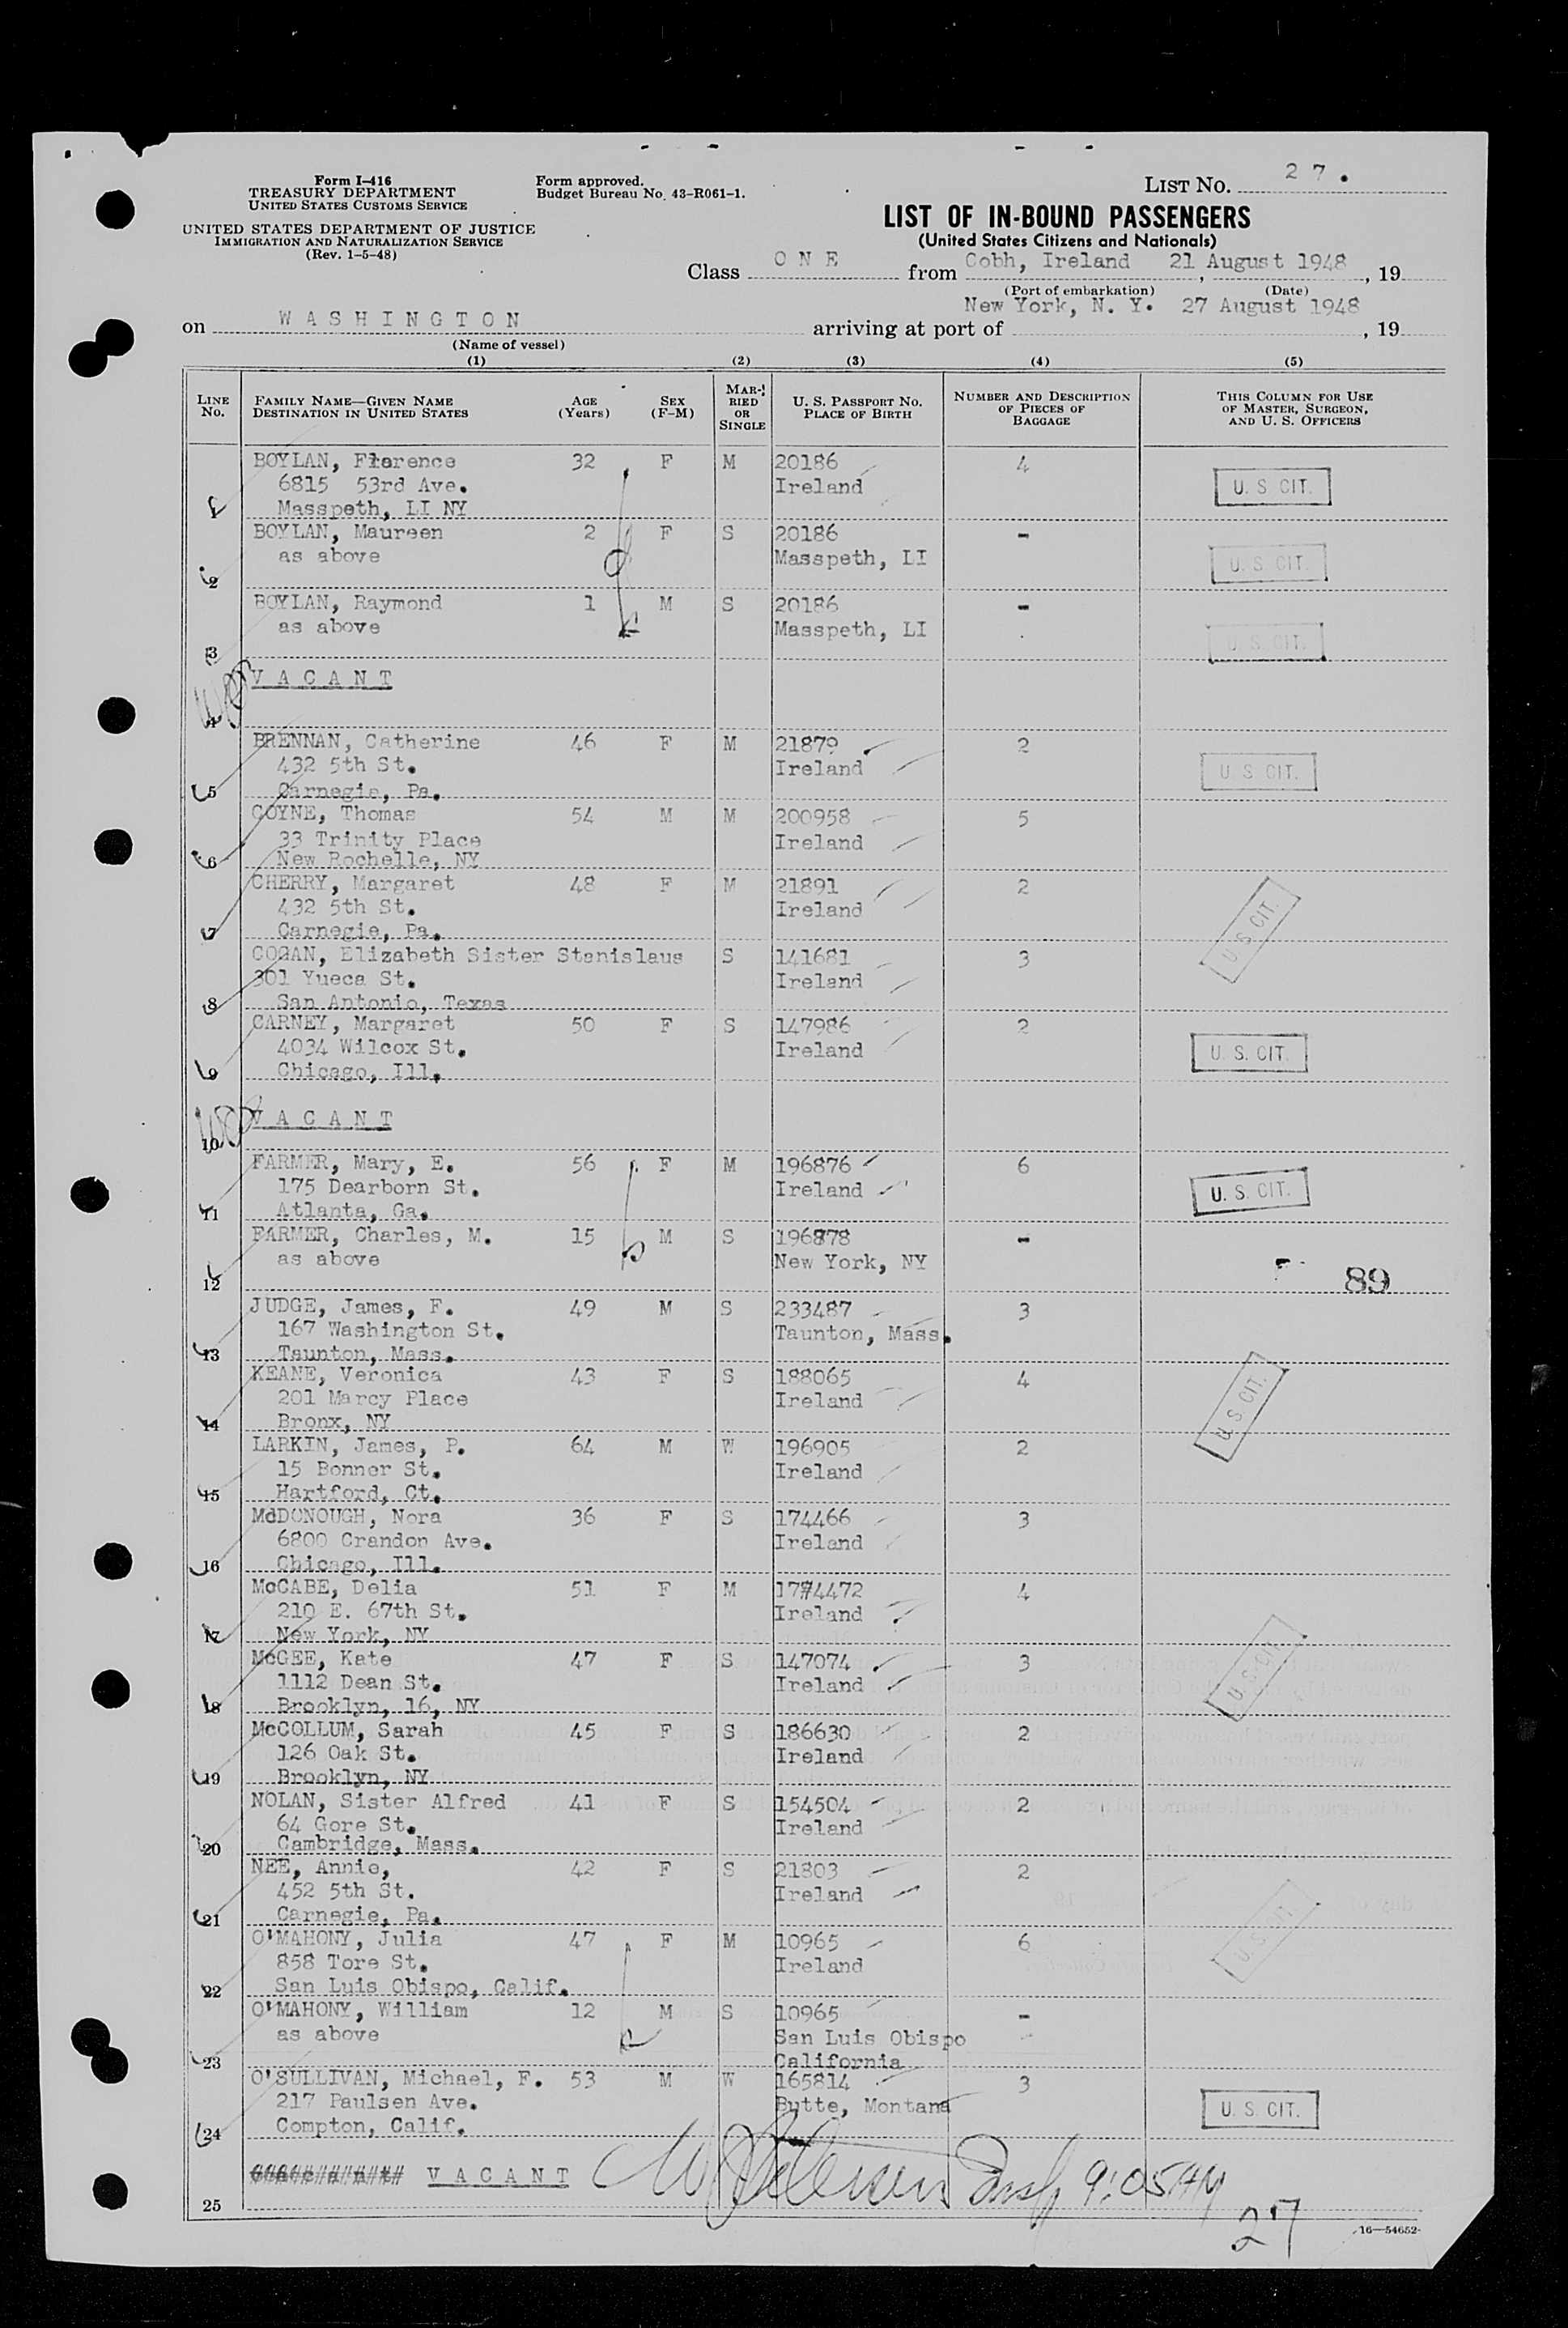 Form I-416
TREASURY DEPARTMENT
UNITED STATES CUSTOMS SERVICE
UNITED STATES DEPARTMENT OF JUSTICE
IMMIGRATION AND NATURALIZATION SERVICE
(Rev. 1-5-48)
Form approved.
Budget Bureau No. 43-R061-1.
LIST NO. 27.
LIST OF IN-BOUND PASSENGERS
(United States Citizens and Nationals)
Class O N E from Cobh, Ireland 21 August 1948, 19
(Port of embarkation) (Date)
on W A S H I N G T O N arriving at port of New York, N. Y. 27 August 1948, 19
(Name of vessel)
(1) (2) (3) (4) (5)
LINE No.
FAMILY NAME—GIVEN NAME
DESTINATION IN UNITED STATES
AGE (Years)
SEX (F-M)
MARRIED OR SINGLE
U. S. PASSPORT NO.
PLACE OF BIRTH
NUMBER AND DESCRIPTION OF PIECES OF BAGGAGE
THIS COLUMN FOR USE OF MASTER, SURGEON, AND U. S. OFFICERS
BOYLAN, Florence 32 F M 20186 4
6815 53rd Ave. Ireland U. S. CIT.
1 Masspeth, LI NY
BOYLAN, Maureen 2 F S 20186 -
as above Masspeth, LI U. S. CIT.
2
BOYLAN, Raymond 1 M S 20186 -
as above Masspeth, LI U. S. CIT.
3
V A C A N T
4
BRENNAN, Catherine 46 F M 21879 2
432 5th St. Ireland U. S. CIT.
5 Carnegie, Pa.
COYNE, Thomas 54 M M 200958 5
33 Trinity Place Ireland
6 New Rochelle, NY
CHERRY, Margaret 48 F M 21891 2
432 5th St. Ireland U. S. CIT.
7 Carnegie, Pa.
COGAN, Elizabeth Sister Stanislaus S 141681 3
301 Yueca St. Ireland
8 San Antonio, Texas
CARNEY, Margaret 50 F S 147986 2
4034 Wilcox St. Ireland U. S. CIT.
9 Chicago, Ill.
V A C A N T
10
FARMER, Mary, E. 56 F M 196876 6
175 Dearborn St. Ireland U. S. CIT.
11 Atlanta, Ga.
FARMER, Charles, M. 15 M S 196878 -
as above New York, NY
12 89
JUDGE, James, F. 49 M S 233487 3
167 Washington St. Taunton, Mass.
13 Taunton, Mass.
KEANE, Veronica 43 F S 188065 4
201 Marcy Place Ireland U. S. CIT.
14 Bronx, NY
LARKIN, James, P. 64 M W 196905 2
15 Bonner St. Ireland
15 Hartford, Ct.
McDONOUGH, Nora 36 F S 174466 3
6800 Crandon Ave. Ireland
16 Chicago, Ill.
McCABE, Delia 51 F M 174472 4
210 E. 67th St. Ireland
17 New York, NY
McGEE, Kate 47 F S 147074 3
1112 Dean St. Ireland U. S. CIT.
18 Brooklyn, 16, NY
McCOLLUM, Sarah 45 F S 186630 2
126 Oak St. Ireland
19 Brooklyn, NY
NOLAN, Sister Alfred 41 F S 154504 2
64 Gore St. Ireland
20 Cambridge, Mass.
NEE, Annie, 42 F S 21803 2
452 5th St. Ireland
21 Carnegie, Pa. U. S. CIT.
O'MAHONY, Julia 47 F M 10965 6
858 Tore St. Ireland
22 San Luis Obispo, Calif.
O'MAHONY, William 12 M S 10965 -
as above San Luis Obispo
23 California
O'SULLIVAN, Michael, F. 53 M W 165814 3
217 Paulsen Ave. Butte, Montana U. S. CIT.
24 Compton, Calif.
V A C A N T 9:05 AM
25
27
16—54652